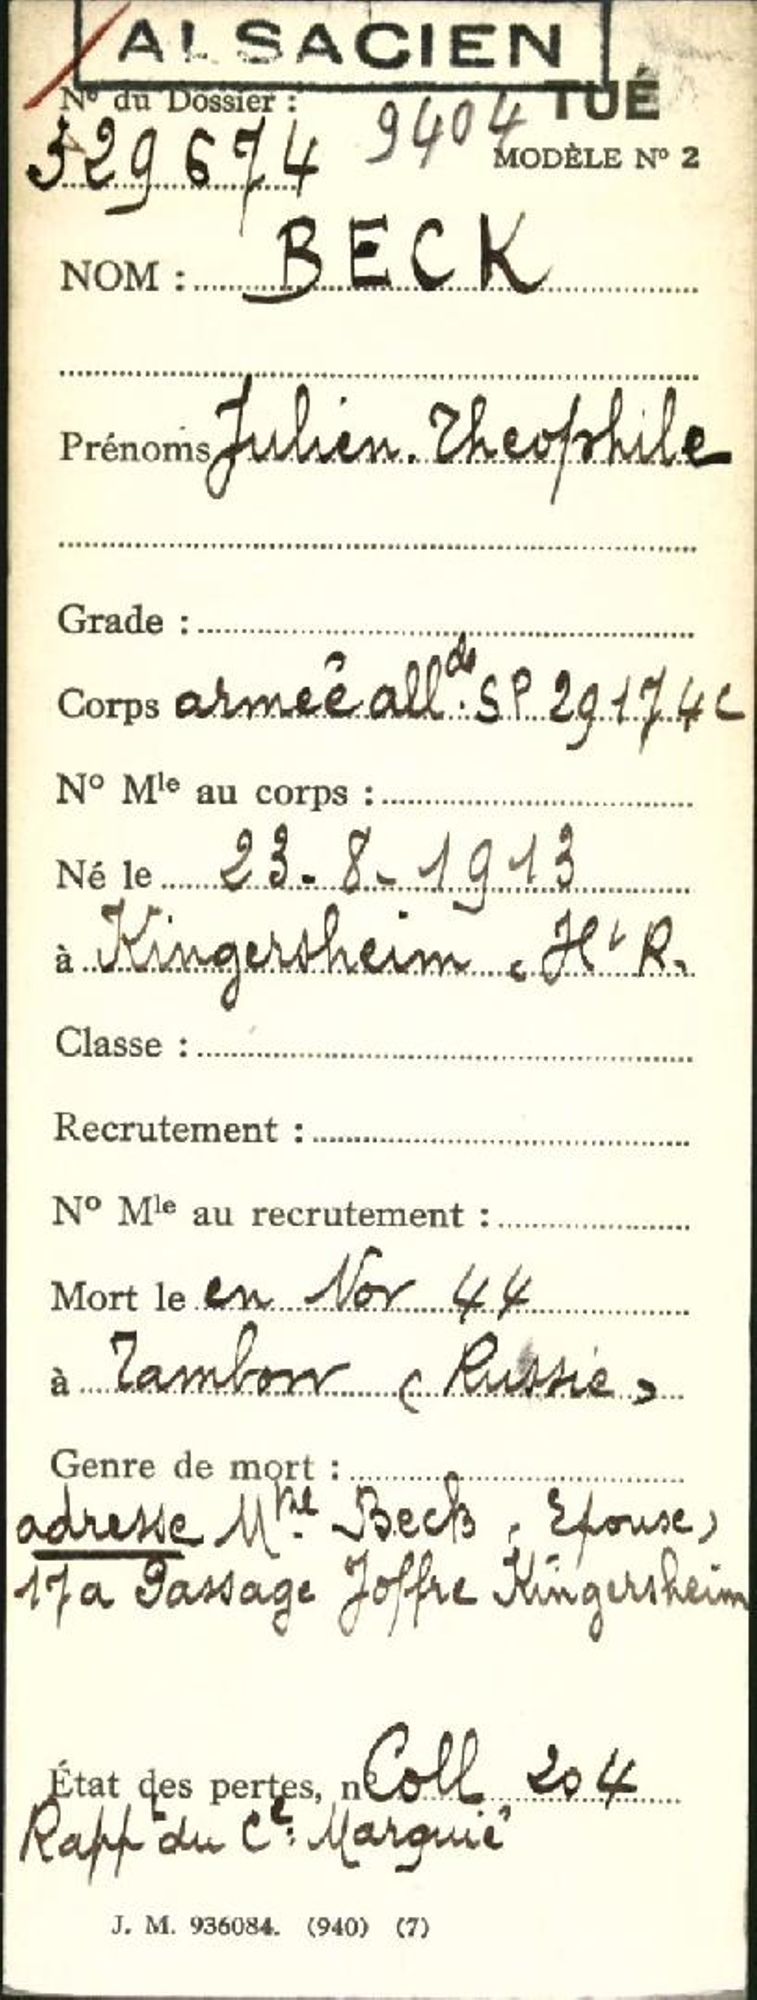 ALSACIEN
N° du Dossier :
TUÉ
329674 9404
MODÈLE N° 2
NOM : BECK
Prénoms Julien. Theophile
Grade :
Corps armée all de SP 29174C
N° Mle au corps :
Né le 23-8-1913
à Kingersheim (Ht R.
Classe :
Recrutement :
N° Mle au recrutement :
Mort le en Nov 44
à Tambow (Russie)
Genre de mort :
adresse Mme Beck (Epouse)
17a Passage Joffre Kingersheim
État des pertes, n° Coll 204
Rappt du Ct. Marquié
J. M. 936084. (940) (7)